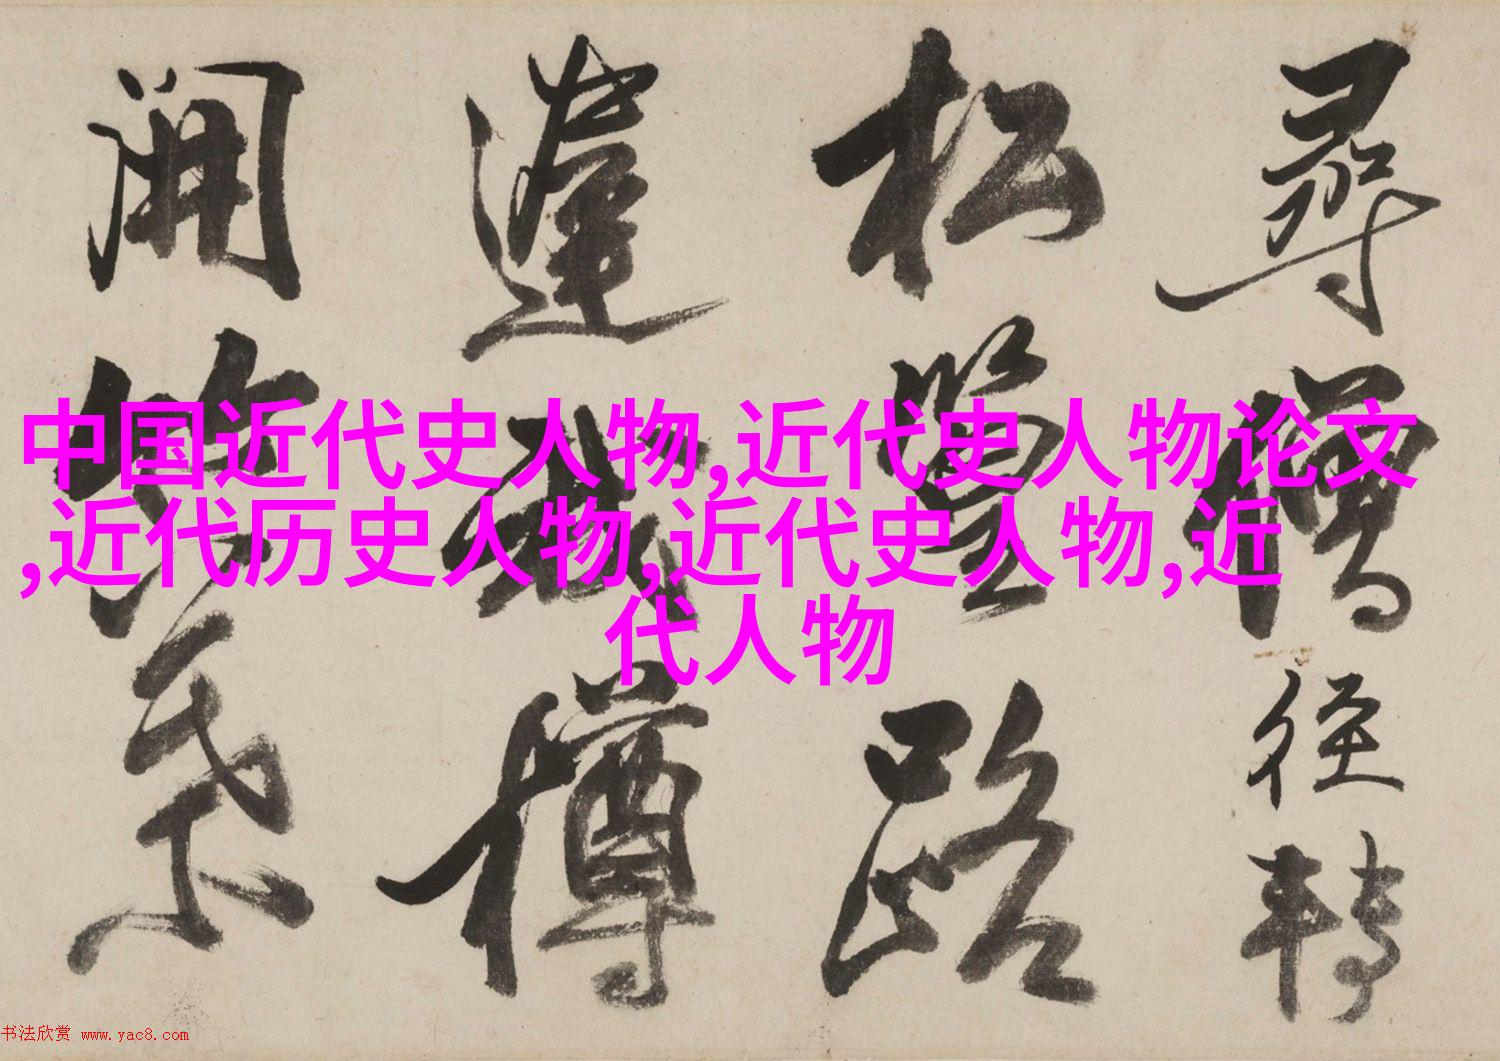 尋僧徑轉
松篁路
樽
開
中国近代史人物,近代史人物论文
,近代历史人物,近代史人物,近
代人物
书法欣赏 www.yac8.com